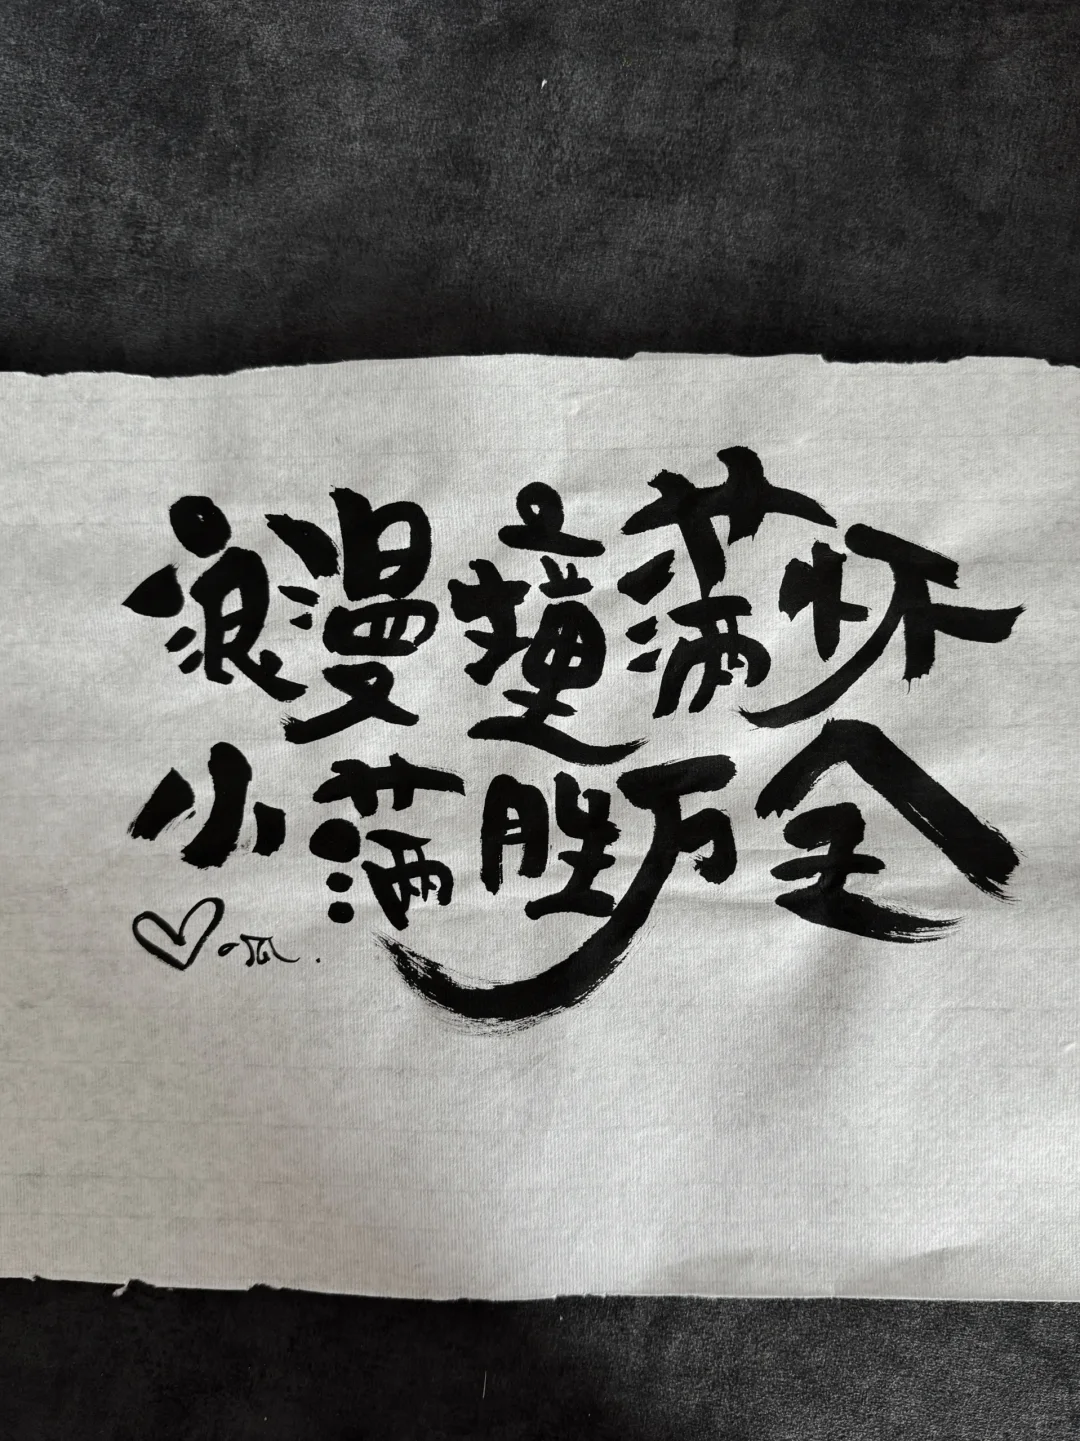 浪漫撞满怀
小满胜万全